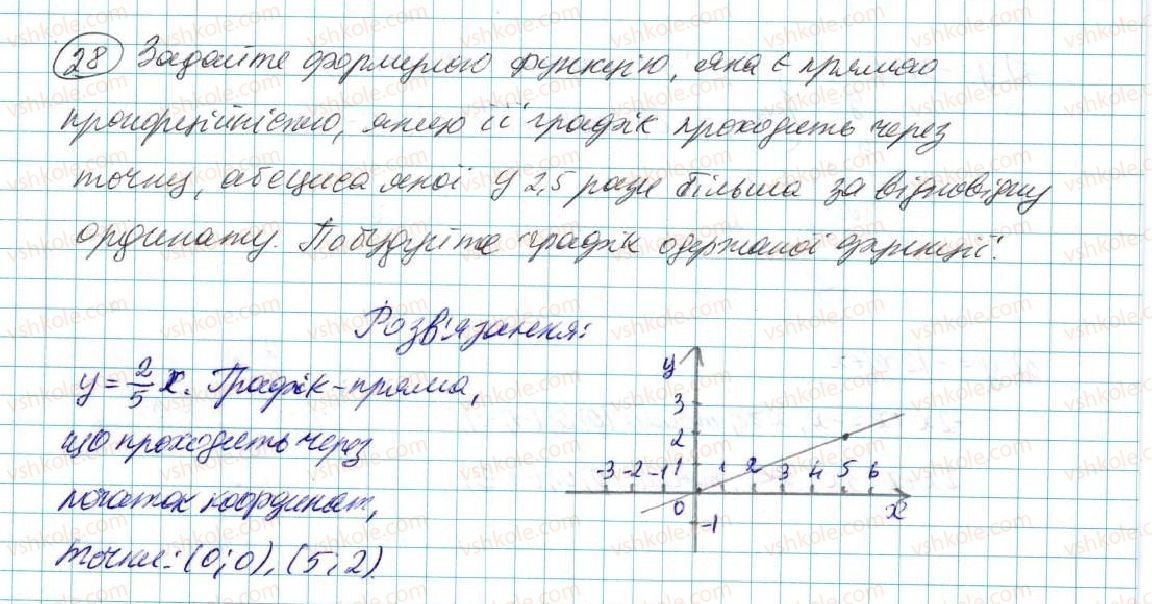 28 Задайте формулою функцію, яка є прямою
пропорційністю, якщо її графік проходить через
точку, абсциса якої у 2,5 рази більша за відповідну
ординату. Побудуйте графік одержаної функції.
Розв'язання:
y = 2/5 x. Графік - пряма,
що проходить через
початок координат,
точки: (0; 0), (5; 2).
y
3
2
1
-3 -2 -1 1 2 3 4 5 6
0 x
-1
vshkole.com